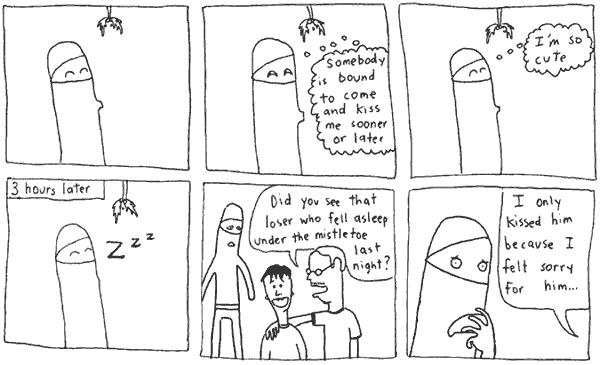 Somebody
is bound
to come
and kiss
me sooner
or later
I'm so
cute
3 hours later
Z z z
Did you see that
loser who fell asleep
under the mistletoe
last
night?
I only
kissed him
because I
felt sorry
for him...